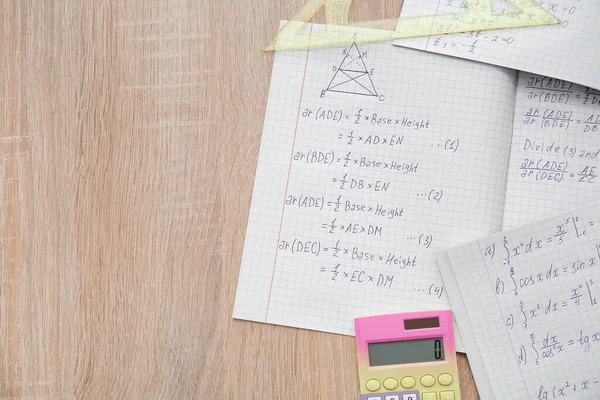 N M
D E
B C
ar(ADE) = 1/2 × Base × Height
= 1/2 × AD × EN ...(1)
ar(BDE) = 1/2 × Base × Height
= 1/2 DB × EN ...(2)
ar(ADE) = 1/2 Base × Height
= 1/2 × AE × DM ...(3)
ar(DEC) = 1/2 × Base × Height
= 1/2 × EC × DM ...(4)
-2 = 0
ar(ADE)
ar(BDE) =
ar(ADE)/ar(BDE) = AD/DB
Divide (3) and
ar(ADE)/ar(DEC) = AE/EC
a) ∫ x⁴ dx = x⁵/5
b) ∫ cos x dx = sin x
c) ∫ x³ dx = x⁴/4
d) ∫ dx/cos²x = tg x
lg(x² + x -
0